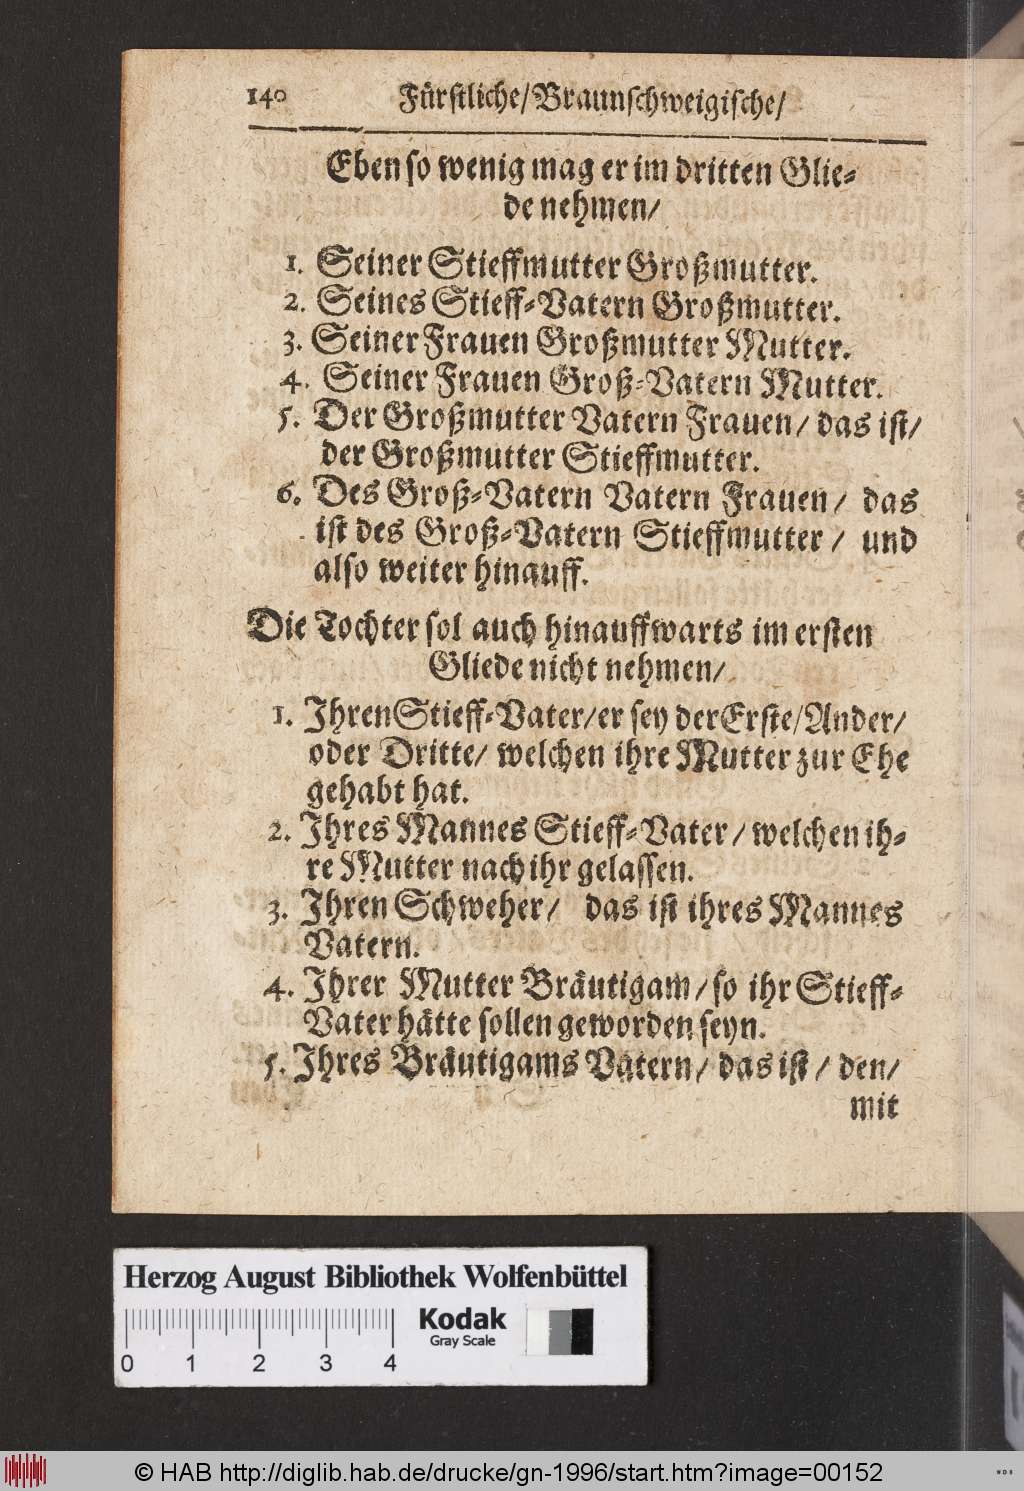 140 Fürstliche/Braunschweigische/
Eben so wenig mag er im dritten Glie-
de nehmen/
1. Seiner Stieffmutter Großmutter.
2. Seines Stieff-Vatern Großmutter.
3. Seiner Frauen Großmutter Mutter.
4. Seiner Frauen Groß-Vatern Mutter.
5. Der Großmutter Vatern Frauen/ das ist/
der Großmutter Stieffmutter.
6. Des Groß-Vatern Vatern Frauen/ das
ist des Groß-Vatern Stieffmutter/ und
also weiter hinauff.
Die Tochter sol auch hinauffwarts im ersten
Gliede nicht nehmen/
1. Ihren Stieff-Vater/er sey der Erste/Ander/
oder Dritte/ welchen ihre Mutter zur Ehe
gehabt hat.
2. Ihres Mannes Stieff-Vater/welchen ih-
re Mutter nach ihr gelassen.
3. Ihren Schweher/ das ist ihres Mannes
Vatern.
4. Ihrer Mutter Bräutigam/so ihr Stieff-
Vater hätte sollen geworden seyn.
5. Ihres Bräutigams Vatern/ das ist/ den/
mit
Herzog August Bibliothek Wolfenbüttel
Kodak
Gray Scale
0 1 2 3 4
© HAB http://diglib.hab.de/drucke/gn-1996/start.htm?image=00152
WDB